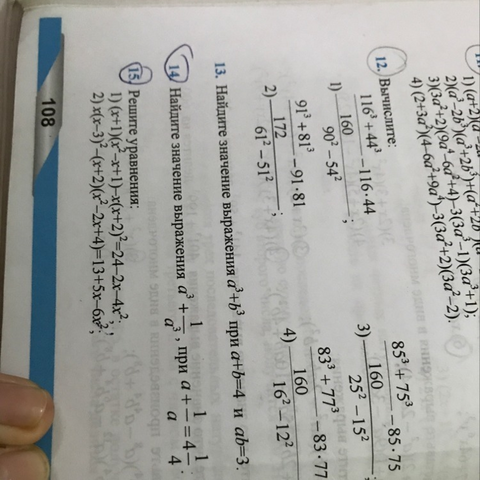 1) (a+2)(a
2)(a³-2b³)(a³+2b³)+(a²+2b
3)(3a²+2)(9a⁴-6a²+4)-3(3a³-1)(3a³+1);
4) (2+3a²)(4-6a²+9a⁴)-3(3a²+2)(3a²-2).
12. Вычислите:
116³+44³
160
-116·44
1)
90²-54²
;
85³+75³
160
-85·75
3)
25²-15²
91³+81³
172
-91·81
2)
61²-51²
;
83³+77³
160
-83·77
4)
16²-12²
13. Найдите значение выражения a³+b³ при a+b=4 и ab=3.
14. Найдите значение выражения a³+1/a³, при a+1/a=4 1/4.
15. Решите уравнения:
1) (x+1)(x²-x+1)-x(x+2)²=24-2x-4x²;
2) x(x-3)²-(x+2)(x²-2x+4)=13+5x-6x²;
108